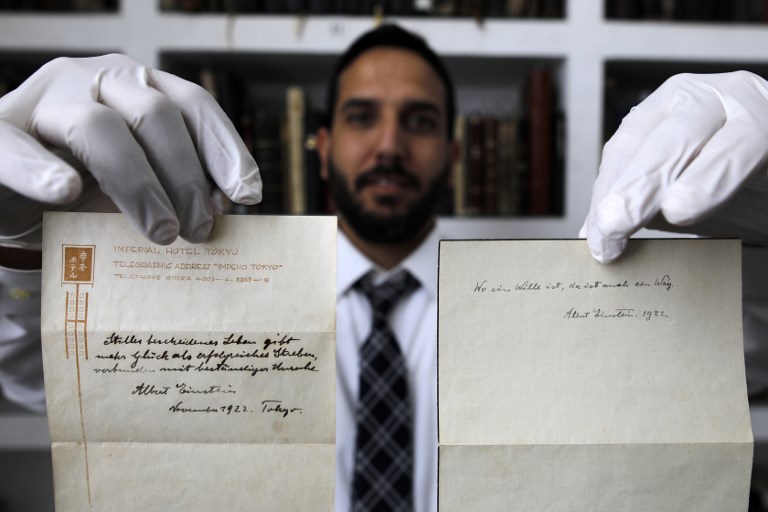 帝国
ホテル
IMPERIAL HOTEL TOKYO
TELEGRAPHIC ADDRESS "IMPEHO TOKYO"
Stilles bescheidenes Leben gibt
mehr Glück als erfolgreiches Streben,
verbunden mit beständiger Unruhe
Albert Einstein
November 1922. Tokyo.
Wo ein Wille ist, da ist auch ein Weg.
Albert Einstein. 1922.